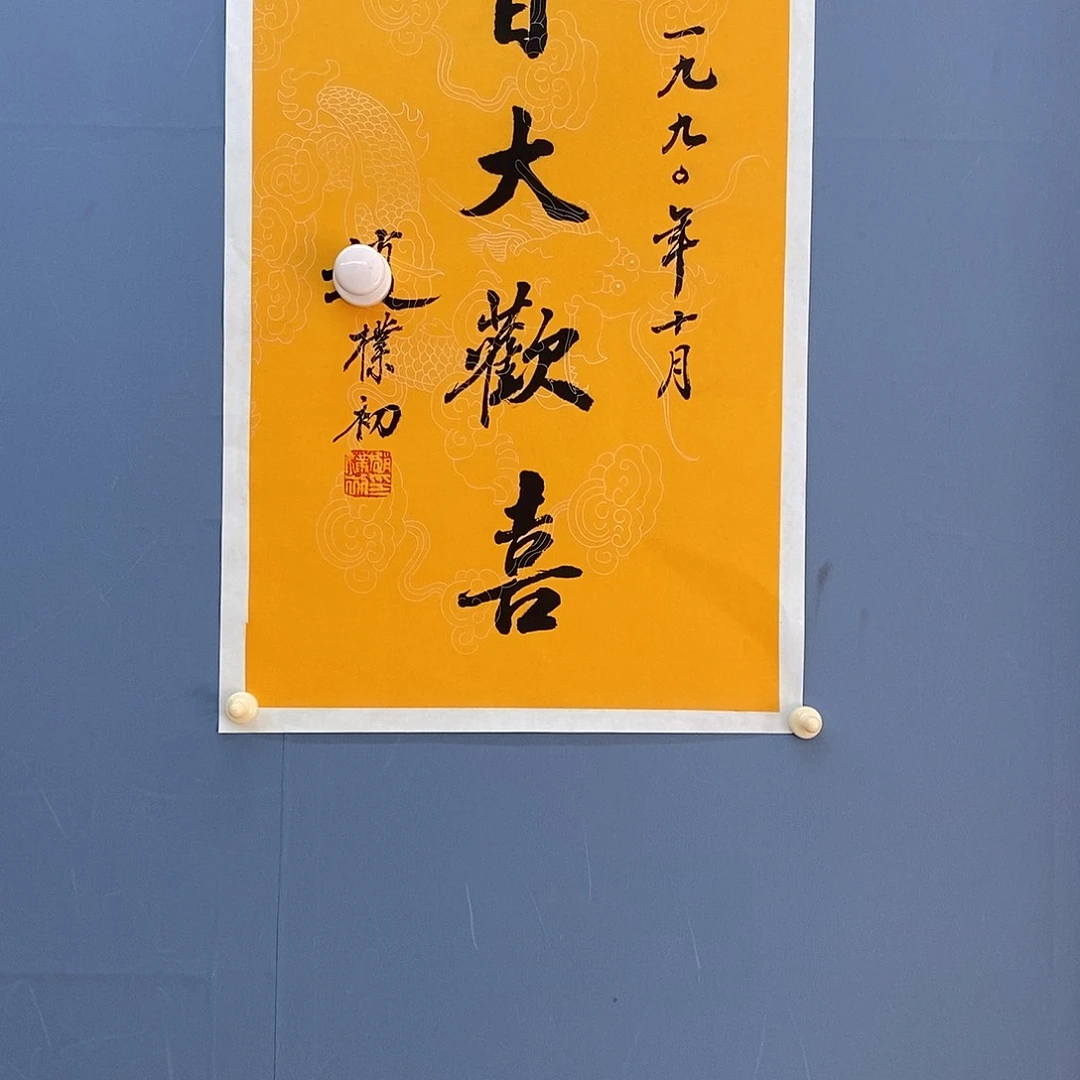 一九九〇年十月
大歡喜
樸初